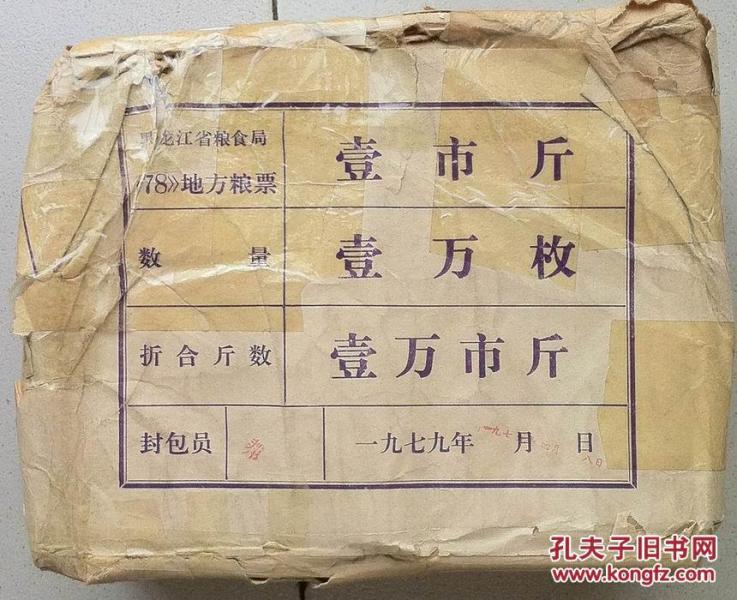 黑龙江省粮食局
《78》地方粮票
壹市斤
数量
壹万枚
折合斤数
壹万市斤
封包员
一九七九年 月 日
孔夫子旧书网
www.kongfz.com